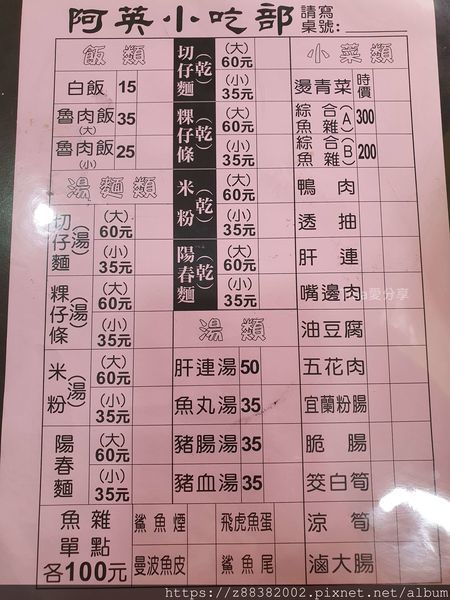 阿英小吃部 請寫桌號:
飯類
白飯 15
魯肉飯(大) 35
魯肉飯(小) 25
湯麵類
切仔麵(湯) (大)60元 (小)35元
粿仔條(湯) (大)60元 (小)35元
米粉(湯) (大)60元 (小)35元
陽春麵 (大)60元 (小)35元
切仔麵(乾) (大)60元 (小)35元
粿仔條(乾) (大)60元 (小)35元
米粉(乾) (大)60元 (小)35元
陽春麵(乾) (大)60元 (小)35元
湯類
肝連湯 50
魚丸湯 35
豬腸湯 35
豬血湯 35
小菜類
燙青菜 時價
綜合魚雜(A) 300
綜合魚雜(B) 200
鴨肉
透抽
肝連
嘴邊肉
油豆腐
五花肉
宜蘭粉腸
脆腸
筊白筍
涼筍
滷大腸
魚雜單點各100元
鯊魚煙 飛虎魚蛋
曼波魚皮 鯊魚尾
愛分享
https://z88382002.pixnet.net/album